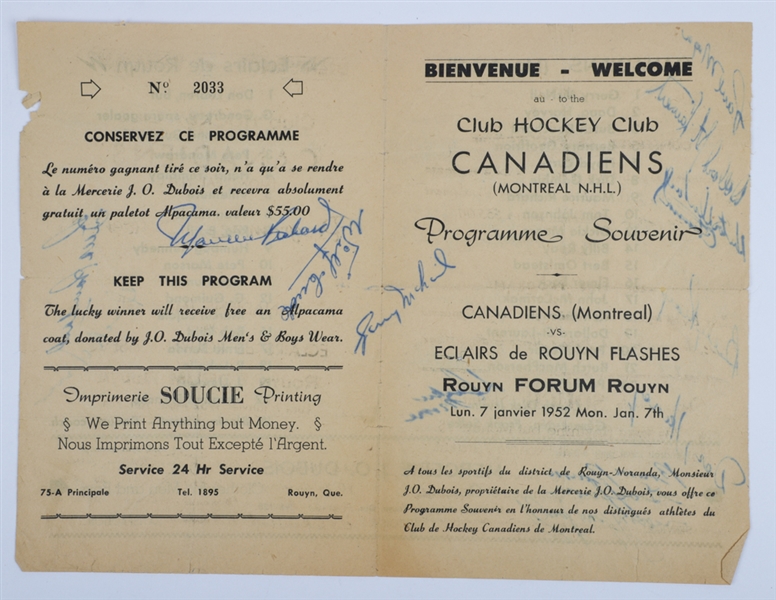 Nº 2033
CONSERVEZ CE PROGRAMME
Le numéro gagnant tiré ce soir, n'a qu'a se rendre
à la Mercerie J. O. Dubois et recevra absolument
gratuit, un paletot Alpacama. valeur $55.00
Maurice Richard
KEEP THIS PROGRAM
The lucky winner will receive free an Alpacama
coat, donated by J.O. Dubois Men's & Boys Wear.
Imprimerie SOUCIE Printing
§ We Print Anything but Money. §
Nous Imprimons Tout Excepté l'Argent.
Service 24 Hr Service
75-A Principale Tel. 1895 Rouyn, Que.
BIENVENUE - WELCOME
au - to the
Club HOCKEY Club
CANADIENS
(MONTREAL N.H.L.)
Programme Souvenir
CANADIENS (Montreal)
-VS-
ECLAIRS de ROUYN FLASHES
ROUYN FORUM ROUYN
Lun. 7 janvier 1952 Mon. Jan. 7th
A tous les sportifs du district de Rouyn-Noranda, Monsieur
J.O. Dubois, propriétaire de la Mercerie J.O. Dubois, vous offre ce
Programme Souvenir en l'honneur de nos distingués athlètes du
Club de Hockey Canadiens de Montreal.